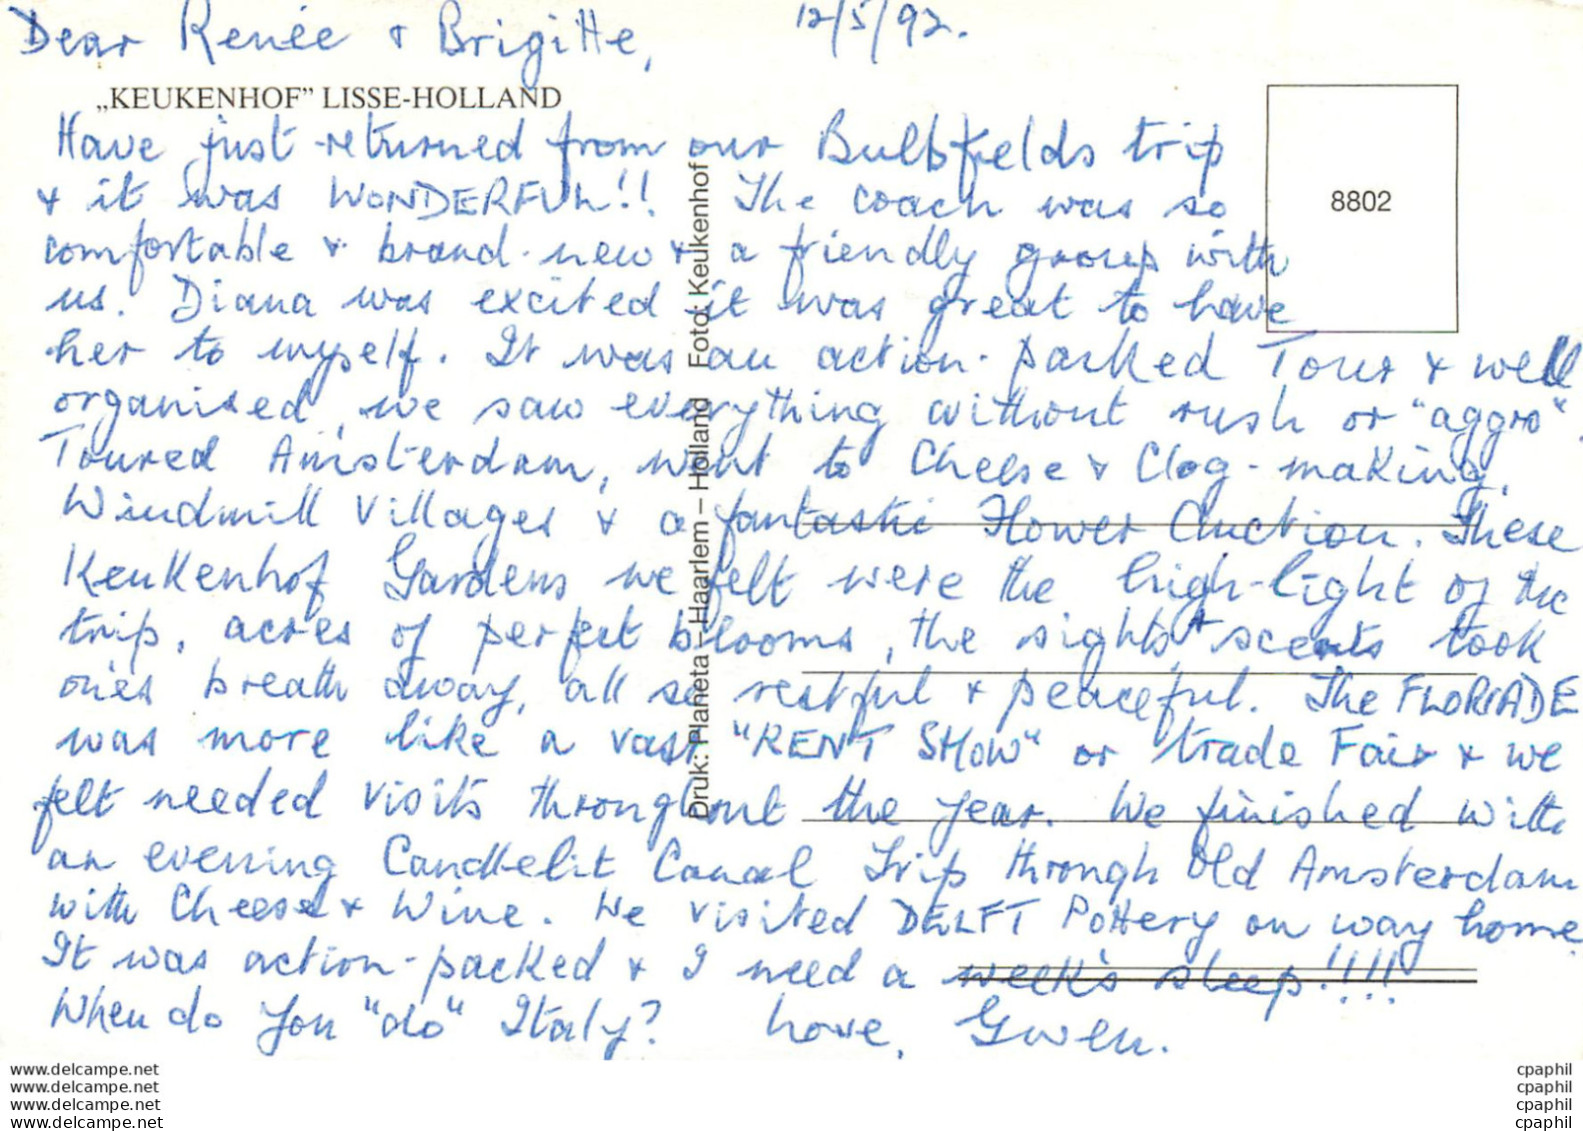 Dear Renée & Brigitte, 12/5/92.
„KEUKENHOF” LISSE-HOLLAND
Have just returned from our Bulbfields trip
& it was WONDERFUL!! The coach was so
comfortable & brand-new & a friendly group with
us. Diana was excited & it was great to have
her to myself. It was an action-packed Tour & well
organised, we saw everything without rush or "aggro".
Toured Amsterdam, went to Cheese & Clog-making,
Windmill Villages & a fantastic Flower Auction. These
Keukenhof Gardens we felt were the high-light of the
trip, acres of perfect blooms, the sights & scents took
ones breath away, all so restful & peaceful. The FLORIADE
was more like a vast "KENT SHOW" or trade Fair & we
felt needed visits throughout the year. We finished with
an evening Candlelit Canal Trip through Old Amsterdam
with Cheese & Wine. We visited DELFT Pottery on way home.
It was action-packed & I need a week's sleep!!!!
When do you "do" Italy? Love, Gwen.
8802
Druk: Planeta – Haarlem – Holland Foto: Keukenhof
www.delcampe.net
www.delcampe.net
www.delcampe.net
www.delcampe.net
cpaphil
cpaphil
cpaphil
cpaphil